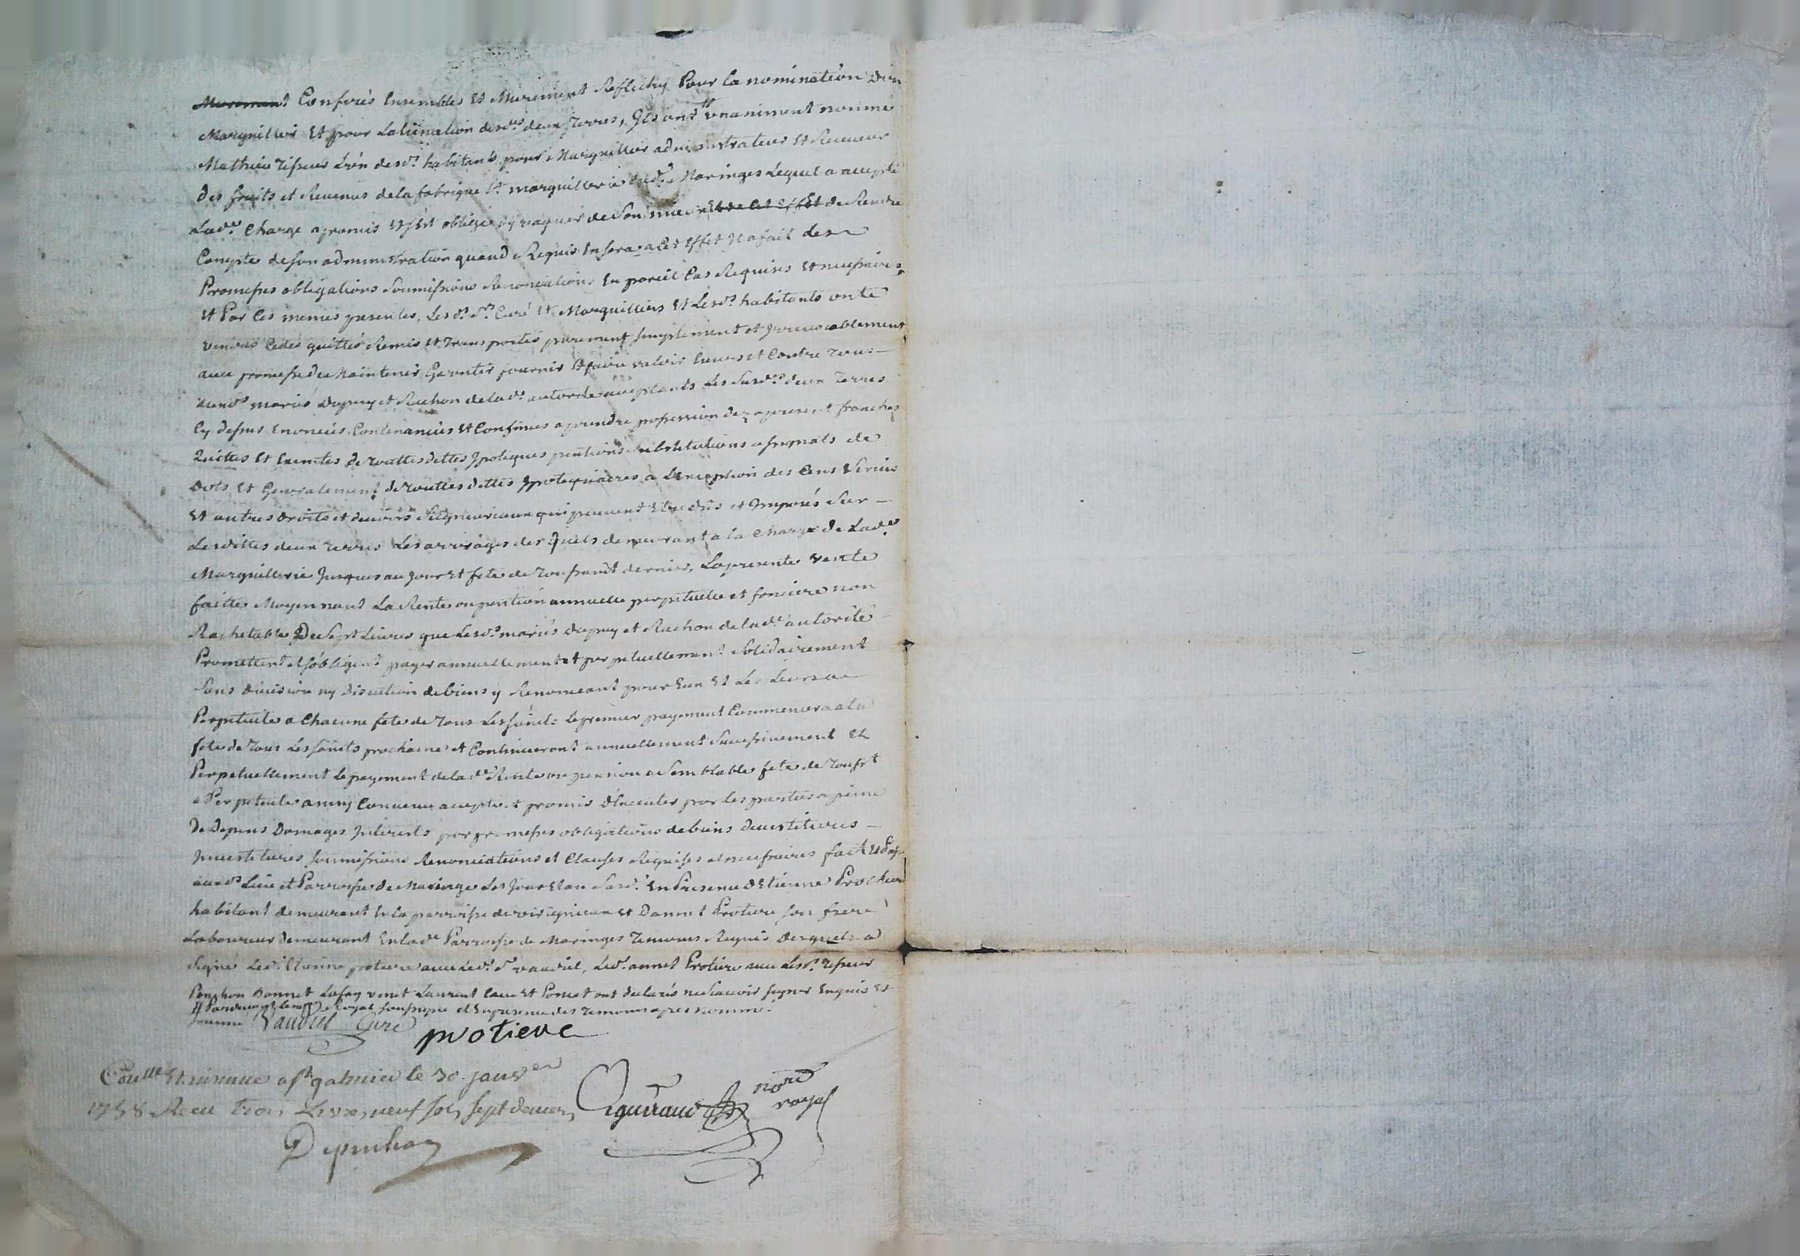 Conferés Ensembles Et Murement Reflechy Pour la nomination d'un
Marguillier Et pour Latienation desd.es deux Terres, Ils ont unaniment nommé
Mathieu Tisseur L'un desd.s habitants pour Marguillier administrateur Et Receveur
Des fruits et Revenus de la fabrique Et marguillerie dud. Maringes Lequel a accepté
Lad.e Charge a promis Et s'est obligé d'y vaquer de Son mieux et de cet Effet de Rendre
Compte de son administration quand Requis En sera a cet Effet Il a fait des
Promesses obligations Soumissions Renonciations En pareil Cas Requises Et necessaires,
Et Par Ces memes presentes, Lesd.s S.r Curé Et Marguilliers Et Lesd.s habitants ont
vendus Cedés quittés Remis Et Transportés purement simplement et Irrevocablement
avec promesse de Maintenir Garentir fournir Et faire valoir Envers et Contre Tous
auxd.s mariés Dupuy et Rachon de lad.e autorité acceptants Les Susd.es deux Terres
Cy dessus Enoncées Contenances Et Confinées a prendre possession dez apresent franches
Quittes Et Exemtes de Touttes dettes Ypoteques pentions Substitutions assignats de
Dots Et Generalement de Touttes dettes Ypotequaires a L'exception des Cens Servis
Et autres Droits et devoirs Seigneuriaux qui peuvent Etre dûs et Imposés Sur
Lesdittes deux Terres Les arrérages desquels demeurant a la Charge de Lad.e
Marguillerie Jusques au Jour Et fete de Toussaint dernier, La presente vente
faitte Moyennant La Rente ou pention annuelle perpetuelle et fonciere non
Rachetable De Sept Livres que Lesd.s mariés Dupuy et Rachon de lad.e autorité
Promettent et s'obligent payer annuellement et perpetuellement Solidairement
Sans Division ny Discution de biens y Renonceant pour Eux Et Les Leurs a
Perpetuité a Chacune fete de Tous Les Saints Le premier payement Commencera a la
fete de Tous Les Saints prochaine et Continueront annuellement Successivement Et
Perpetuellement Le payement de lad.e Rente ou pension a Semblable fete de Touss.t
a Perpetuité ainsy Convenu accepté Et promis d'Executer par les parties a peine
De Depens Domages Interests par promesses obligations de biens devestitures
Investitures Soumissions Renonciations et Clauses Requises et necessaires fait Et Passé
aud. Lieu et Parroisse de Maringes Les Jour Et an Susd. En Presence d'Etienne Protiere
habitant demeurant En la parroisse de Et Protiere son frere
Laboureur demeurant En lad.e Parroisse de Maringes Temoins Requis Desquels a
Signé Led. Etienne protiere avec led. S.r vaudiel, Led. annet Protiere avec Lesd.s Tisseur
Ponchon Bonnet Lafay venet Laurent Et Poncet ont declarés ne Scavoir signer Enquis Et
Royal soussigné Et En presence des Temoins apres nommé.
Vaudiel Curé
protiere
Coull.é Et insinué a S.t galmier le 30. janvier
1758 Receu Trois Livres, neuf sols, sept deniers,
nore
royal